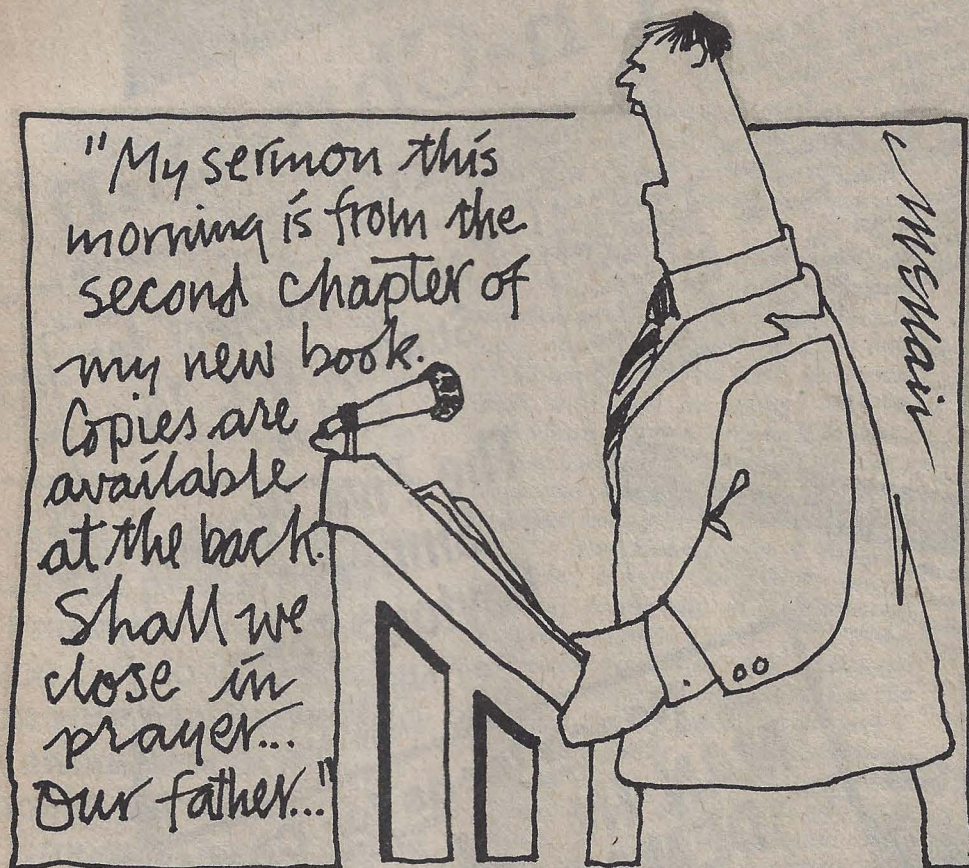 "My sermon this
morning is from the
second chapter of
my new book.
Copies are
available
at the back.
Shall we
close in
prayer...
Our father..."
McNair